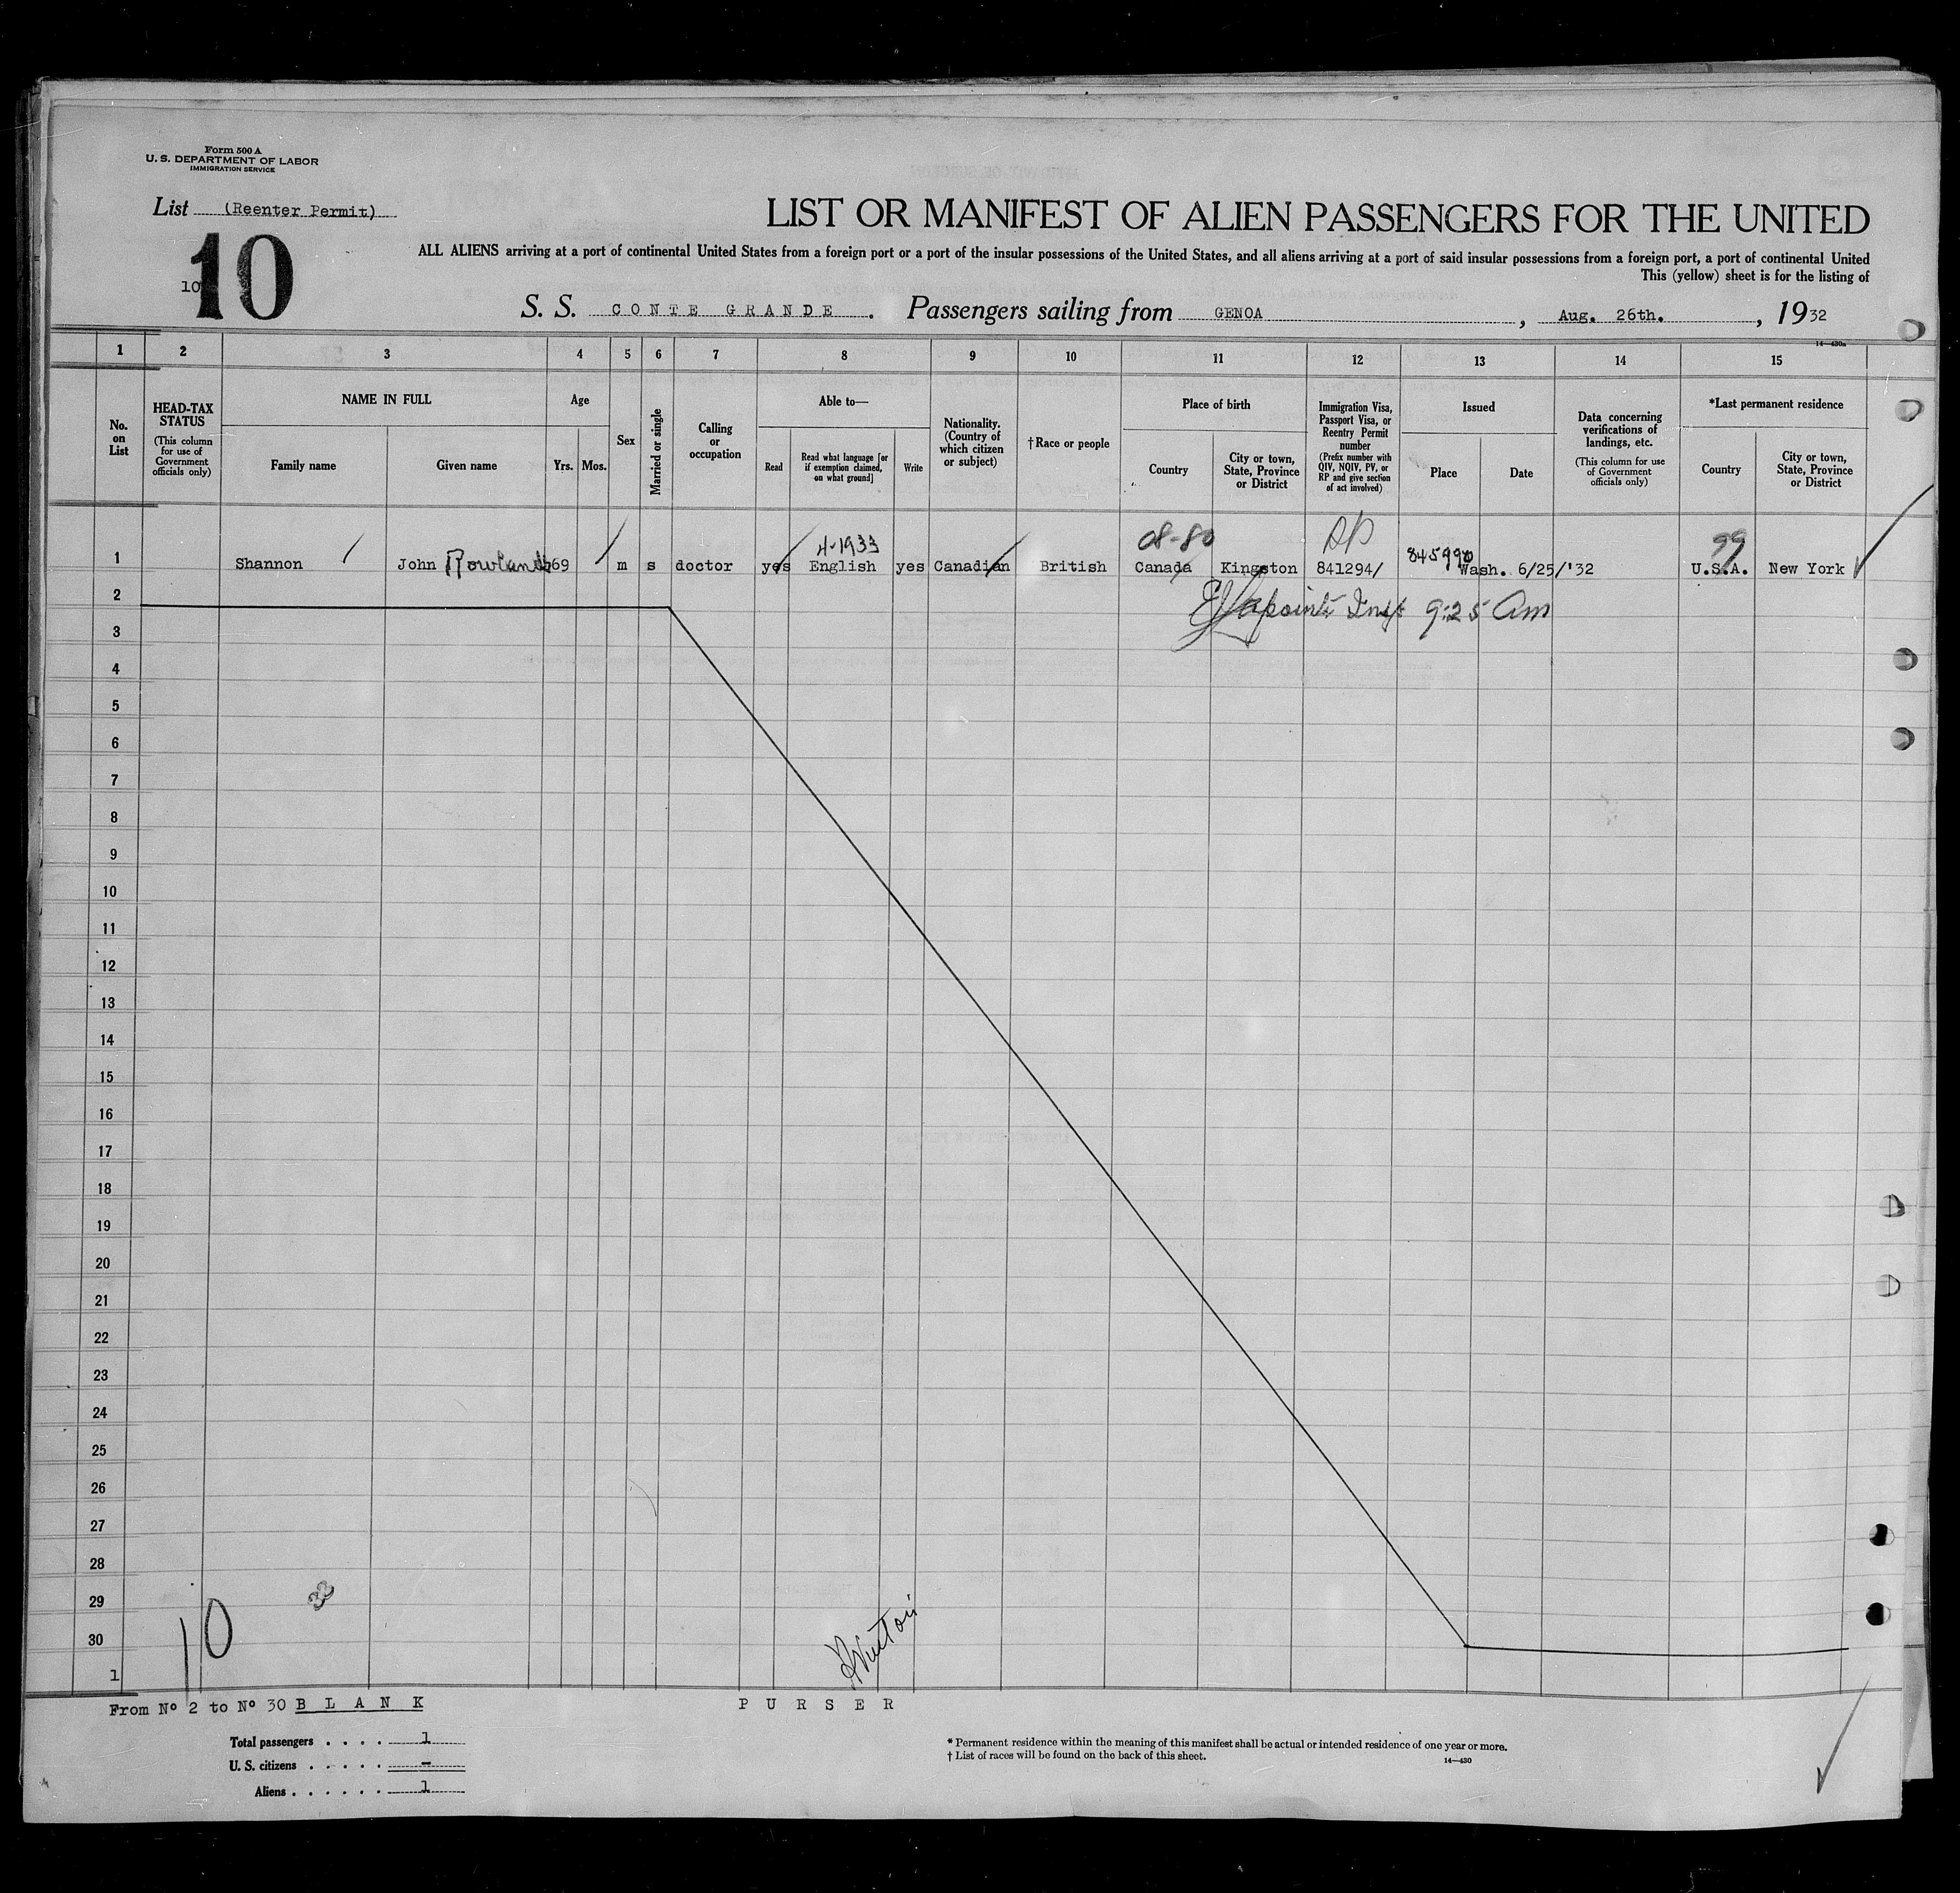 Form 500 A
U. S. DEPARTMENT OF LABOR
IMMIGRATION SERVICE
List (Reenter Permit)
10
10
LIST OR MANIFEST OF ALIEN PASSENGERS FOR THE UNITED
ALL ALIENS arriving at a port of continental United States from a foreign port or a port of the insular possessions of the United States, and all aliens arriving at a port of said insular possessions from a foreign port, a port of continental United
This (yellow) sheet is for the listing of
S. S. CONTE GRANDE. Passengers sailing from GENOA, Aug. 26th., 1932
14—430a
1 2 3 4 5 6 7 8 9 10 11 12 13 14 15
No. on List
HEAD-TAX STATUS
(This column for use of Government officials only)
NAME IN FULL
Family name
Given name
Age
Yrs. Mos.
Sex
Married or single
Calling or occupation
Able to—
Read
Read what language [or if exemption claimed, on what ground]
Write
Nationality. (Country of which citizen or subject)
†Race or people
Place of birth
Country
City or town, State, Province or District
Immigration Visa, Passport Visa, or Reentry Permit number
(Prefix number with QIV, NQIV, PV, or RP and give section of act involved)
Issued
Place
Date
Data concerning verifications of landings, etc.
(This column for use of Government officials only)
*Last permanent residence
Country
City or town, State, Province or District
4-1933 08-80 99
1 Shannon John Rowlands 69 m s doctor yes English yes Canadian British Canada Kingston 841294/ 845990 Wash. 6/25/'32 U.S.A. New York
2
Insp 9:25 Am
3
4
5
6
7
8
9
10
11
12
13
14
15
16
17
18
19
20
21
22
23
24
25
26
27
28
29
30
10
1
From Nº 2 to Nº 30 BLANK
PURSER
Total passengers . . . . 1
U. S. citizens . . . . . -
Aliens . . . . . . 1
* Permanent residence within the meaning of this manifest shall be actual or intended residence of one year or more.
† List of races will be found on the back of this sheet.
14—430